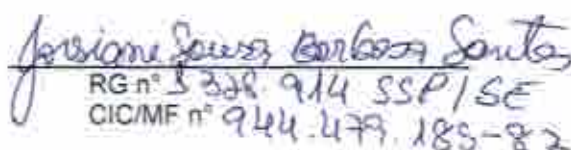 Josiane Souza Barbosa Santos
RG n° 3 328.914 SSP/SE
CIC/MF n° 944.479.185-87